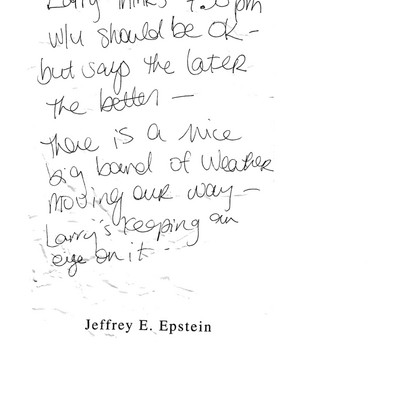 Larry thinks 9:30pm
w/u should be OK -
but says the later
the better —
There is a nice
big band of Weather
moving our way —
Larry's keeping an
eye on it -
Jeffrey E. Epstein